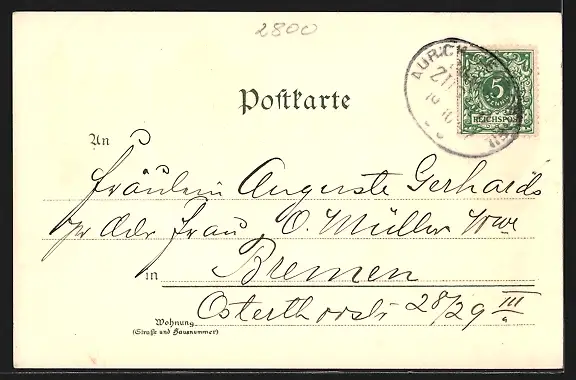 2800
AURICH
ZUG
5
REICHSPOST
Postkarte
An
Fräulein Auguste Gerhards
pr Adr Frau O. Müller Wwe
in Bremen
Osterthorstr 28/29 III
Wohnung
(Straße und Hausnummer)